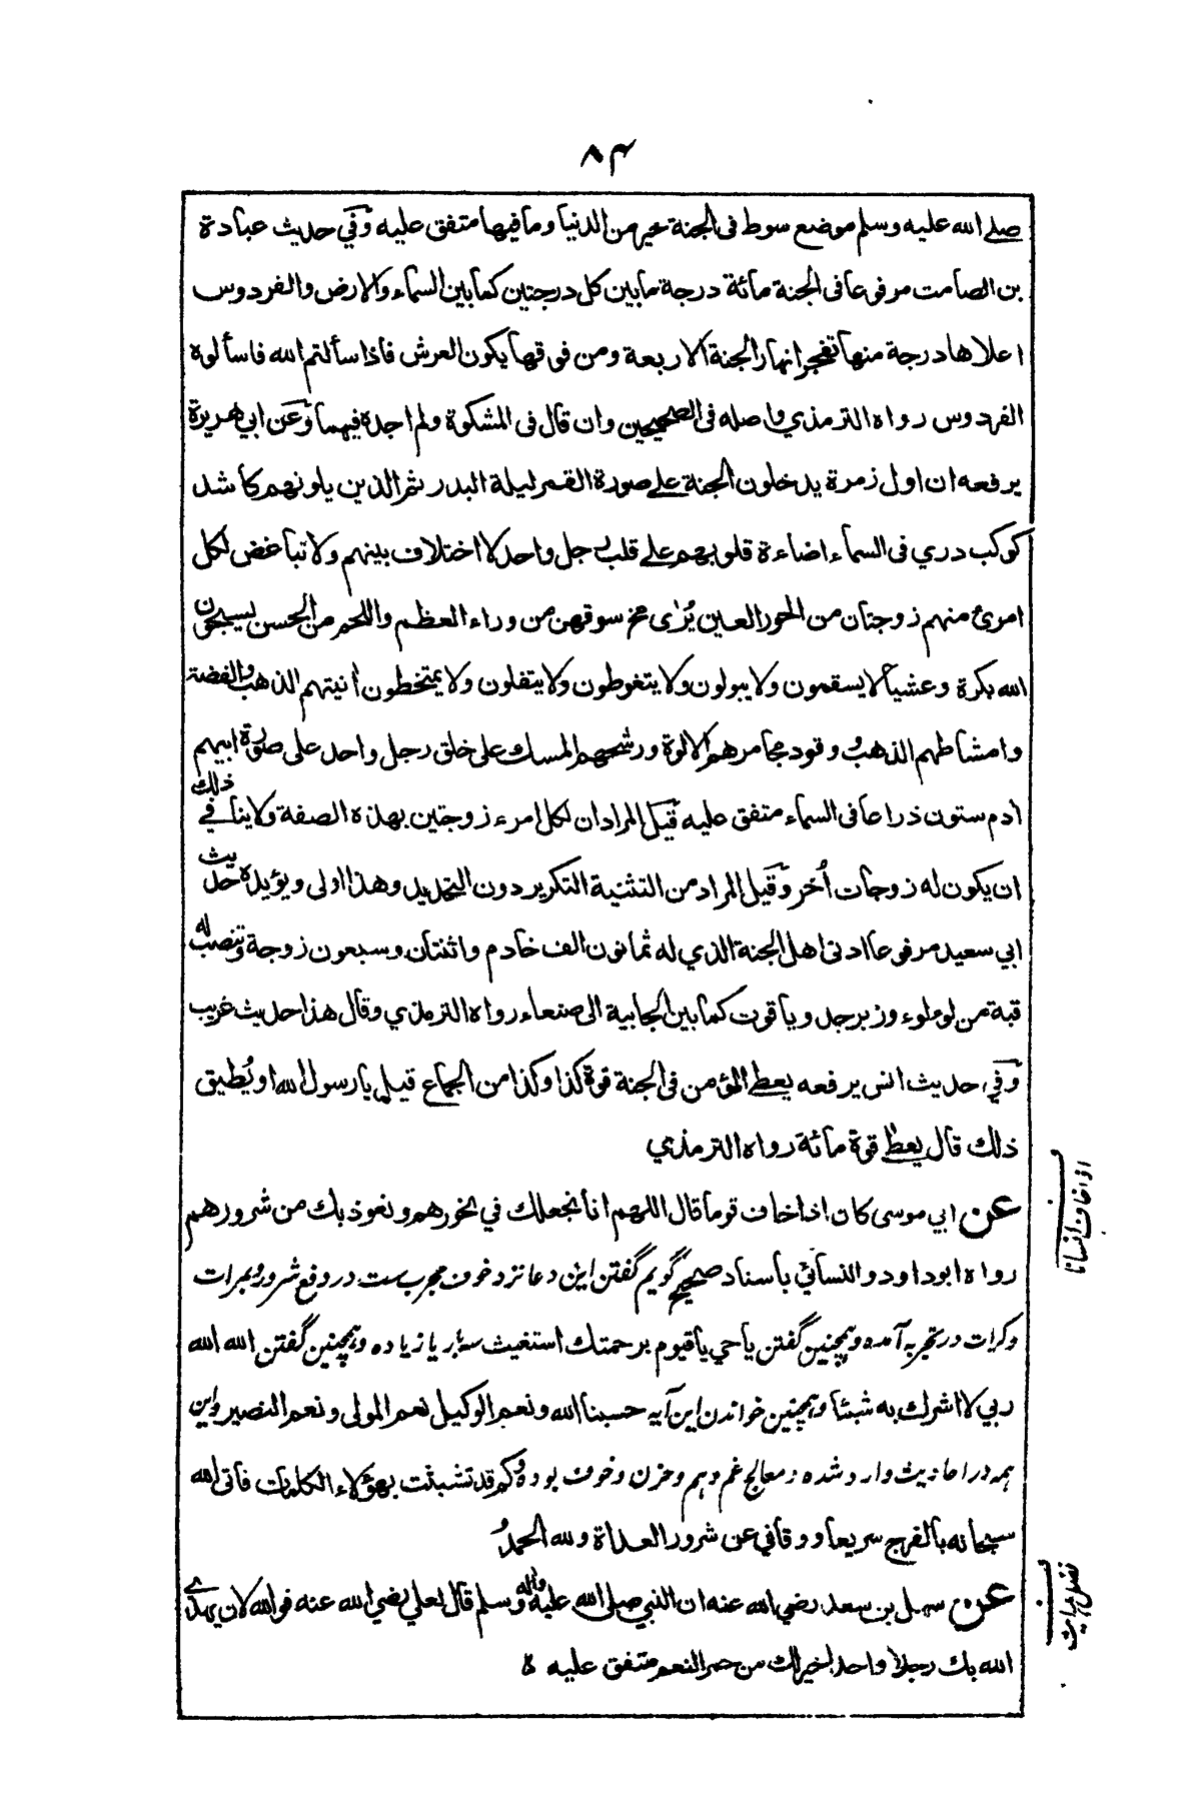 ۸۴
صلے الله عليه وسلم موضع سوط فى الجنة خير من الدنيا وما فيها متفق عليه وفي حديث عبادة
بن الصامت مرفوعا فى الجنة مائة درجة ما بين كل درجتين كما بين السماء والارض والفردوس
اعلاها درجة منها تفجر انهار الجنة الاربعة ومن فوقها يكون العرش فاذا سألتم الله فاسألوه
الفردوس رواه الترمذي واصله فى الصحيحين وان قال فى المشكوة ولم اجده فيهما وعن ابي هريرة
يرفعه ان اول زمرة يدخلون الجنة على صورة القمر ليلة البدر ثم الذين يلونهم كاشد
كوكب دري فى السماء اضاءة قلوبهم على قلب رجل واحد لا اختلاف بينهم ولا تباغض لكل
امرئ منهم زوجتان من الحور العين يُرٰى مخ سوقهن من وراء العظم واللحم من الحسن يسبحون
الله بكرة وعشيا لا يسقمون ولا يبولون ولا يتغوطون ولا يتفلون ولا يمتخطون اٰنيتهم الذهب والفضة
وامشاطهم الذهب وقود مجامرهم الالوة ورشحهم المسك على خلق رجل واحد على صورة ابيهم
اٰدم ستون ذراعا فى السماء متفق عليه قيل المراد ان لكل امرء زوجتين بهذه الصفة ولا ينافي ذلك
ان يكون له زوجات اُخر وقيل المراد من التثنية التكرير دون التحديد وهذا اولى ويؤيده حديث
ابي سعيد مرفوعا ادنى اهل الجنة الذي له ثمانون الف خادم واثنتان وسبعون زوجة وتنصب له
قبة من لوءلوء وزبرجد وياقوت كما بين الجابية الى صنعاء رواه الترمذي وقال هذا حديث غريب
وفي حديث انس يرفعه يعطے المؤمن فى الجنة قوة كذا وكذا من الجماع قيل يا رسول الله او يُطيق
ذلك قال يعطےٰ قوة مائة رواه الترمذي
عن ابي موسى كان اذا خاف قوما قال اللهم انا نجعلك في نحورهم ونعوذ بك من شرورهم
رواه ابو داود والنسائي باسناد صحيح گويم گفتن اين دعا نزد خوف مجرب ست در دفع شرور و بمرات
وكرات در تجربه آمده و همچنين گفتن يا حي يا قيوم برحمتك استغيث سه بار يا زياده و همچنين گفتن الله الله
ربي لا اشرك به شيئا و همچنين خواندن اين آيه حسبنا الله ونعم الوكيل نعم المولى ونعم النصير واين
همه در احاديث وارد شده و معالج غم و هم و حزن و خوف بوده وكم قد تشبثت بهؤلاء الكلمات فاتى الله
سبحانه بالفرج سريعا ووقاني عن شرور العداة ولله الحمدُ
عن سهل بن سعد رضي الله عنه ان النبي صلى الله عليه واله وسلم قال لعلي رضي الله عنه فوالله لان يهدي
الله بك رجلا واحدا خير لك من حمر النعم متفق عليه ه
اذا خاف انسانا
فضل هدايت